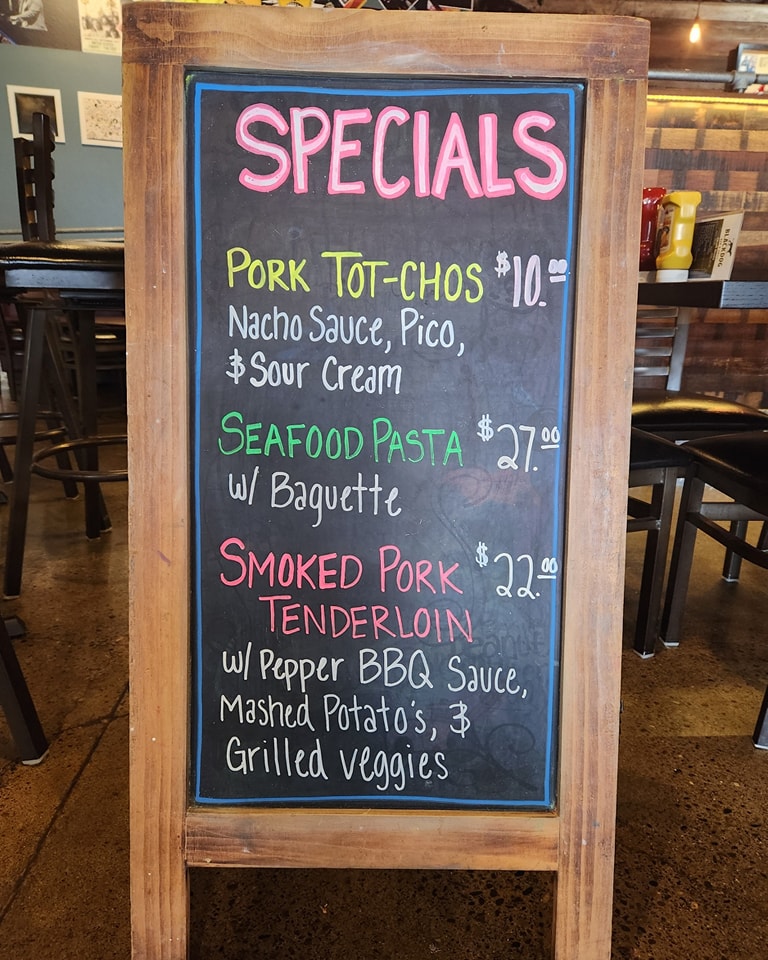 SPECIALS
PORK TOT-CHOS $10.00
Nacho Sauce, Pico,
& Sour Cream
SEAFOOD PASTA $27.00
w/ Baguette
SMOKED PORK $22.00
TENDERLOIN
w/ Pepper BBQ Sauce,
Mashed Potato's, &
Grilled veggies
BLACK DOG